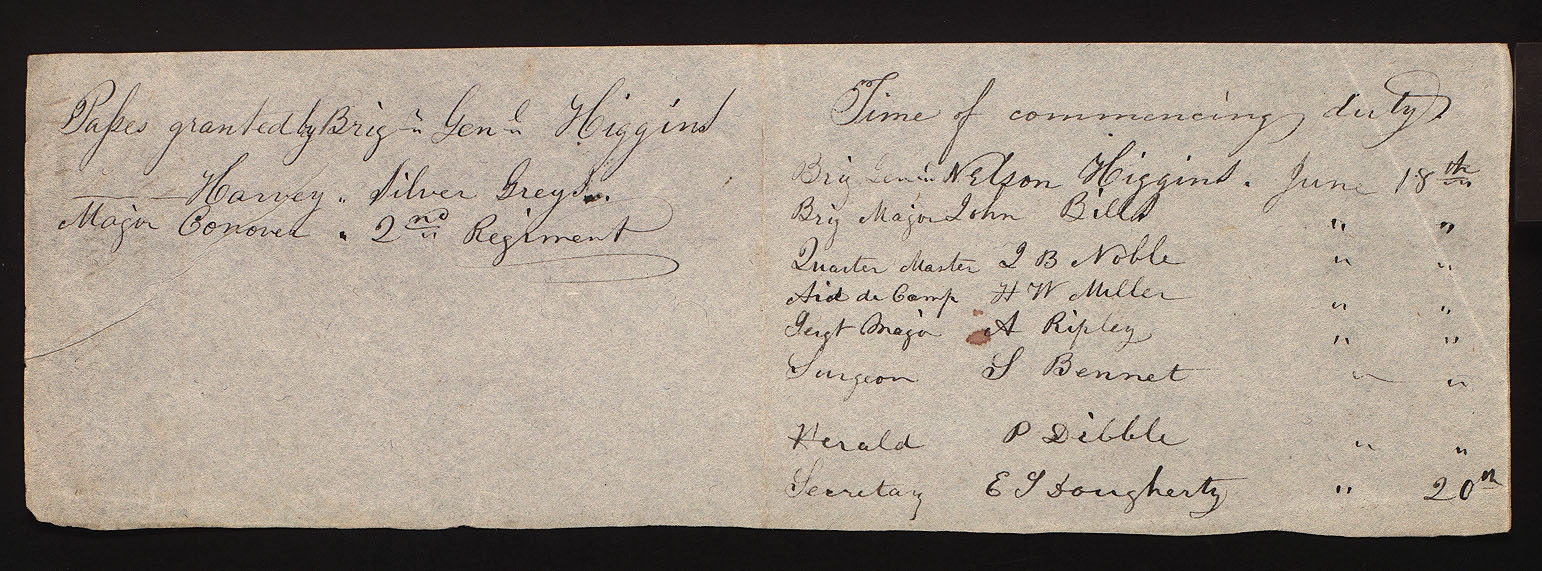 Passes granted by Brigr Genl Higgins
Harvey " Silver Greys.
Major Conover " 2nd Regiment
Time of commencing duty
Brig Genl Nelson Higgins. June 18th
Brig Major John Bills " "
Quarter Master J B Noble " "
Aid de Camp H W Miller " "
Sergt Major A Ripley " "
Surgeon S Bennet " "
Herald P Dibble " "
Secretary E S Dougherty " 20th